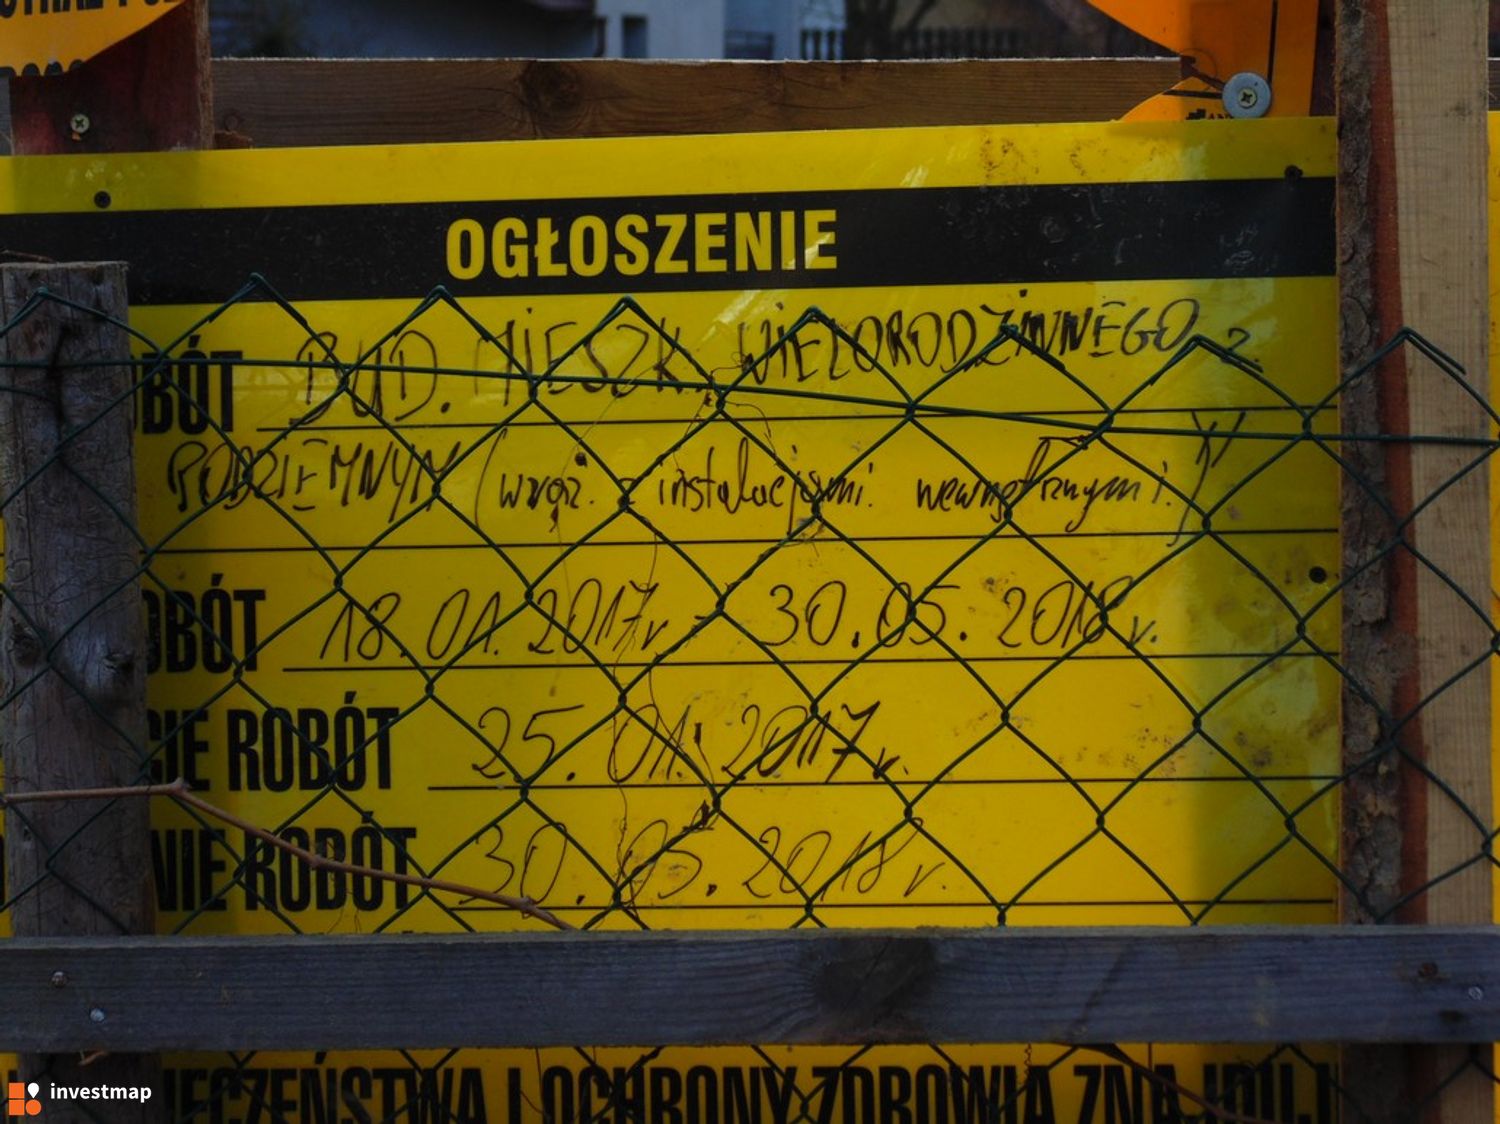 OGŁOSZENIE
OBÓT BUD. MIESZK. WIELORODZINNEGO Z
PODZIEMNYM (wraz. z instalacjami wewnętrznymi.)
OBÓT 18.01.2017r - 30.05.2018r.
CIE ROBÓT 25.01.2017r.
NIE ROBÓT 30.05.2018r.
IECZEŃSTWA I OCHRONY ZDROWIA ZNAJDUJ
investmap